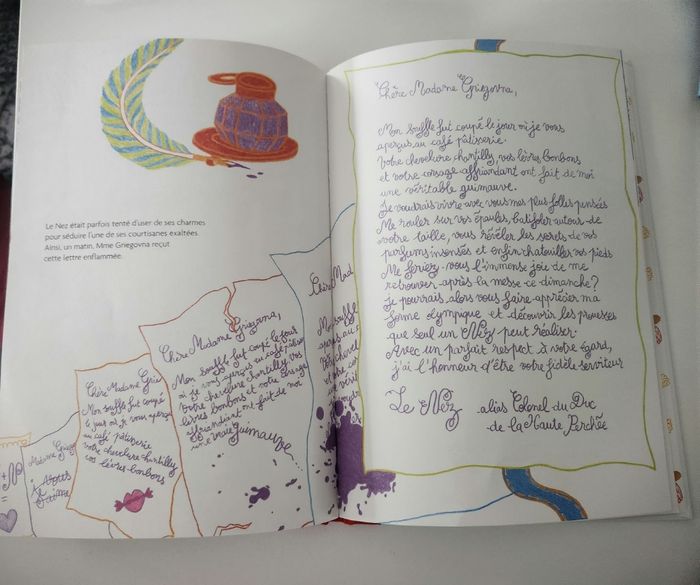 Le Nez était parfois tenté d'user de ses charmes
pour séduire l'une de ses courtisanes exaltées.
Ainsi, un matin, Mme Griegovna reçut
cette lettre enflammée.
Madame Griegov
à
Chère Madame Grie
Mon souffle fut coupé
le jour où je vous aperçu
au café pâtisserie
votre chevelure chantilly
vos lèvres bonbons
Chère Madame Griegovna,
Mon souffle fut coupé le jour
où je vous aperçus au café pâtisse
Votre chevelure chantilly vos
lèvres bonbons et votre corsage
affriandant me fait de moi
une vraie guimauve
Chère Mad
Mon souffle
Chère Madame Griegovna,
Mon souffle fut coupé le jour où je vous
aperçus au café pâtisserie.
Votre chevelure chantilly, vos lèvres bonbons
et votre corsage affriandant ont fait de moi
une véritable guimauve.
Je voudrais vivre avec vous mes plus folles pensées
Me rouler sur vos épaules, batifoler autour de
votre taille, vous révéler les secrets de vos
parfums insensés et enfin chatouiller vos pieds
Me feriez-vous l'immense joie de me
retrouver après la messe ce dimanche?
Je pourrais alors vous faire apprécier ma
forme olympique et découvrir les prouesses
que seul un Nez peut réaliser.
Avec un parfait respect à votre égard,
j'ai l'honneur d'être votre fidèle serviteur
Le Nez alias Colonel du Duc
de la Haute Perchée